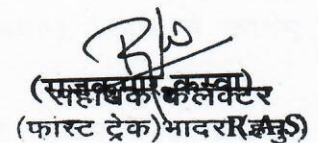 (राजकुमार कस्वा)
सहायक कलेक्टर
(फास्ट ट्रेक) भादरा (हनु)
R.A.S)